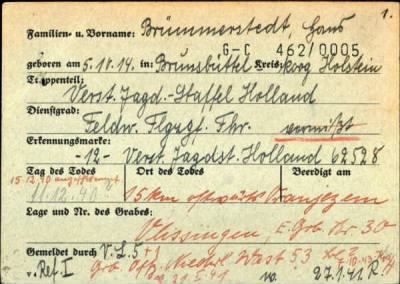 1.
Familien- u. Vorname: Brümmerstedt, Hans
G-C 462/0005
geboren am 5.10.14. in: Brunsbüttel Kreis: Holstein
Truppenteil:
Verst. Jagd-Staffel Holland
Dienstgrad:
Feldw. Flgzgf. Fhr. vermißt
Erkennungsmarke:
-12- Verst. Jagdst. Holland 62528
Tag des Todes Ort des Todes Beerdigt am
15.12.40
11.12.40 15 km
Lage und Nr. des Grabes:
Vlissingen E. Grb. Nr. 30
Gemeldet durch V.L. 5
Ref. I Grb. Offz. West 53
31.5.41 27.1.41 R.